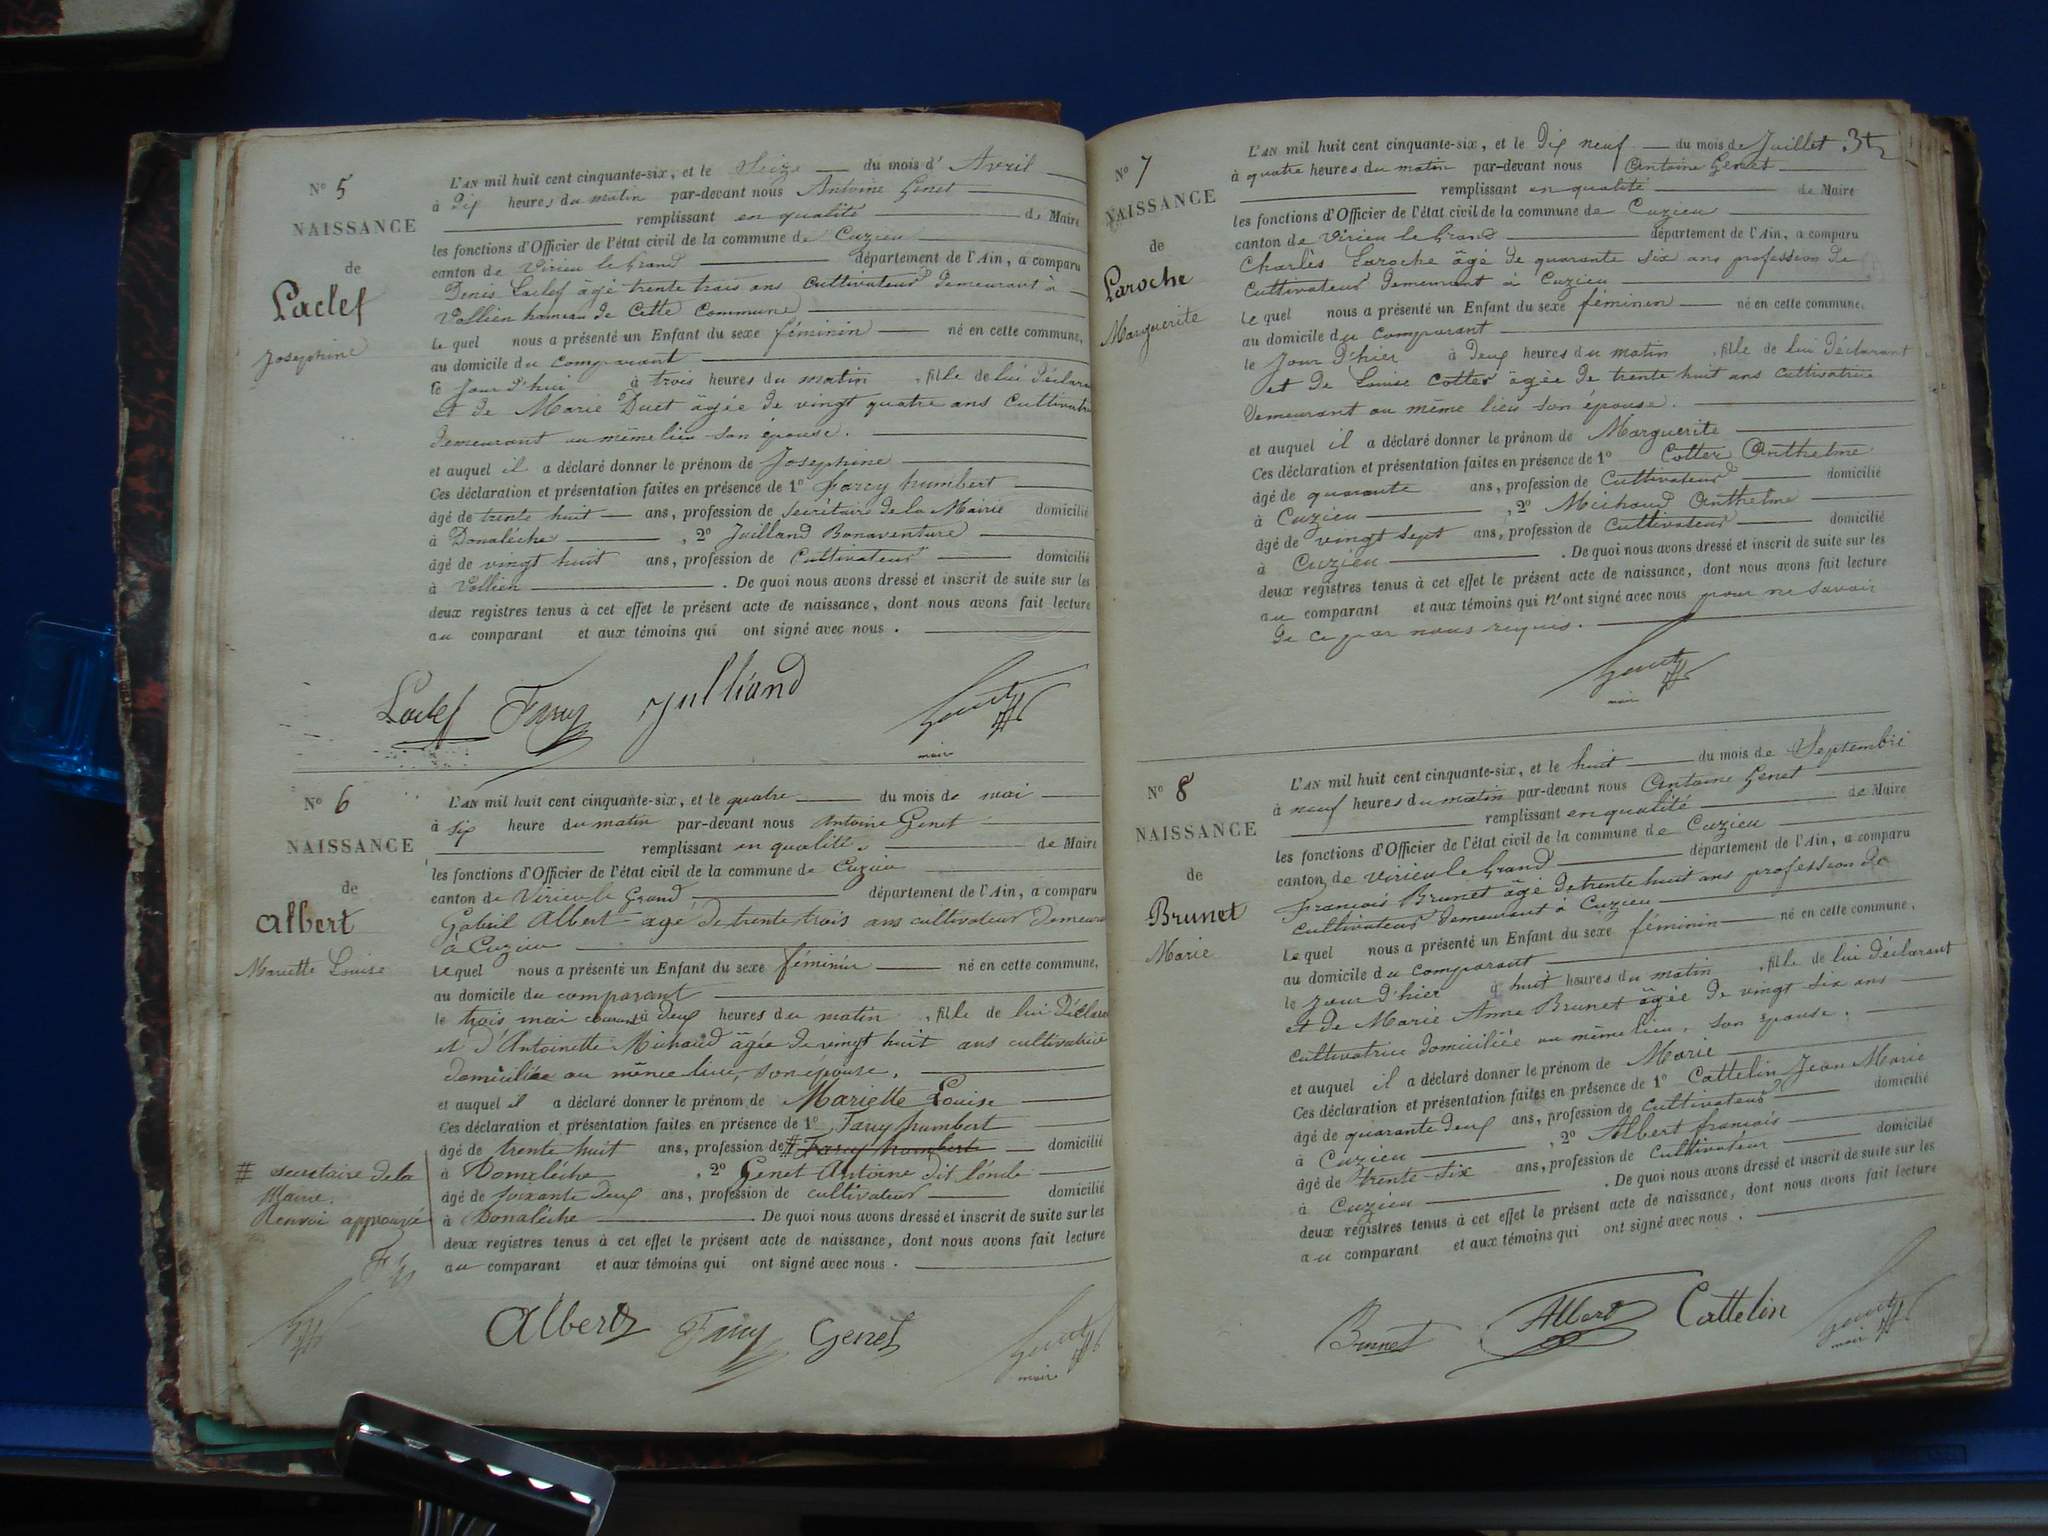 N° 5
NAISSANCE
de
Laclef
Josephine
L'AN mil huit cent cinquante-six, et le Seize du mois d' Avril
à dix heures du matin par-devant nous Antoine Genet
remplissant en qualité de Maire
les fonctions d'Officier de l'état civil de la commune de Cuzieu
canton de Virieu le Grand département de l'Ain, a comparu
Denis Laclef âgé trente trois ans Cultivateur demeurant à
Vollien hameau de Cette Commune
le quel nous a présenté un Enfant du sexe féminin né en cette commune,
au domicile du comparant
le Jour d'hui à trois heures du matin , fille de lui déclara
et de Marie Duet âgée de vingt quatre ans Cultivatri
demeurant au même lieu son épouse.
et auquel il a déclaré donner le prénom de Josephine
Ces déclaration et présentation faites en présence de 1° Farcy humbert
âgé de trente huit ans, profession de Secrétaire de la Mairie domicilié
à Donalèche , 2° Juilland Bonaventure
âgé de vingt huit ans, profession de Cultivateur domicilié
à Vollien . De quoi nous avons dressé et inscrit de suite sur les
deux registres tenus à cet effet le présent acte de naissance, dont nous avons fait lecture
au comparant et aux témoins qui ont signé avec nous .
Laclef Farcy Julliand Genet
maire
N° 6
NAISSANCE
de
Albert
Mariette Louise
L'AN mil huit cent cinquante-six, et le quatre du mois de mai
à six heure du matin par-devant nous Antoine Genet
remplissant en qualité. de Maire
les fonctions d'Officier de l'état civil de la commune de Cuzieu
canton de Virieu le Grand département de l'Ain, a comparu
Gabriel Albert agé de trente trois ans cultivateur demeura
à Cuzieu
le quel nous a présenté un Enfant du sexe féminin né en cette commune,
au domicile du comparant
le trois mai courant à deux heures du matin , fille de lui déclara
et d'Antoinette Michaud âgée de vingt huit ans cultivatrice
domiciliée au même lieu, son épouse,
et auquel il a déclaré donner le prénom de Mariette Louise
Ces déclaration et présentation faites en présence de 1° Farcy humbert
âgé de trente huit ans, profession de # Farcy humbert domicilié
à Donalèche , 2° Genet Antoine dit
âgé de soixante deux ans, profession de cultivateur domicilié
à Donalèche . De quoi nous avons dressé et inscrit de suite sur les
deux registres tenus à cet effet le présent acte de naissance, dont nous avons fait lecture
au comparant et aux témoins qui ont signé avec nous .
# secretaire de la
Mairie.
Renvoi approuvé
Albert Farcy Genet Genet
maire
N° 7
NAISSANCE
de
Laroche
Marguerite
L'AN mil huit cent cinquante-six, et le dix neuf du mois de Juillet
à quatre heures du matin par-devant nous Antoine Genet
remplissant en qualité de Maire
les fonctions d'Officier de l'état civil de la commune de Cuzieu
canton de Virieu le Grand département de l'Ain, a comparu
Charles Laroche âgé de quarante six ans profession de
Cultivateur demeurant à Cuzieu
le quel nous a présenté un Enfant du sexe féminin né en cette commune,
au domicile du comparant
le Jour d'hier à deux heures du matin , fille de lui déclarant
et de Louise Cotter âgée de trente huit ans cultivatrice
demeurant au même lieu son épouse.
et auquel il a déclaré donner le prénom de Marguerite
Ces déclaration et présentation faites en présence de 1° Cotter Anthelme
âgé de quarante ans, profession de Cultivateur domicilié
à Cuzieu , 2° Michaud Anthelme
âgé de vingt sept ans, profession de Cultivateur domicilié
à Cuzieu . De quoi nous avons dressé et inscrit de suite sur les
deux registres tenus à cet effet le présent acte de naissance, dont nous avons fait lecture
au comparant et aux témoins qui n'ont signé avec nous pour ne savoir
de ce par nous requis.
Genet
maire
N° 8
NAISSANCE
de
Brunet
Marie
L'AN mil huit cent cinquante-six, et le huit du mois de Septembre
à neuf heures du matin par-devant nous Antoine Genet
remplissant en qualité de Maire
les fonctions d'Officier de l'état civil de la commune de Cuzieu
canton de Virieu le Grand département de l'Ain, a comparu
Francois Brunet âgé de trente huit ans profession de
Cultivateur demeurant à Cuzieu
le quel nous a présenté un Enfant du sexe féminin né en cette commune,
au domicile du comparant
le Jour d'hier à huit heures du matin , fille de lui déclarant
et de Marie Anne Brunet âgée de vingt six ans
Cultivatrice domiciliée au même lieu, son épouse.
et auquel il a déclaré donner le prénom de Marie
Ces déclaration et présentation faites en présence de 1° Cattelin Jean Marie
âgé de quarante deux ans, profession de Cultivateur domicilié
à Cuzieu , 2° Albert francois
âgé de trente six ans, profession de Cultivateur domicilié
à Cuzieu . De quoi nous avons dressé et inscrit de suite sur les
deux registres tenus à cet effet le présent acte de naissance, dont nous avons fait lecture
au comparant et aux témoins qui ont signé avec nous .
Brunet Albert Cattelin Genet
maire